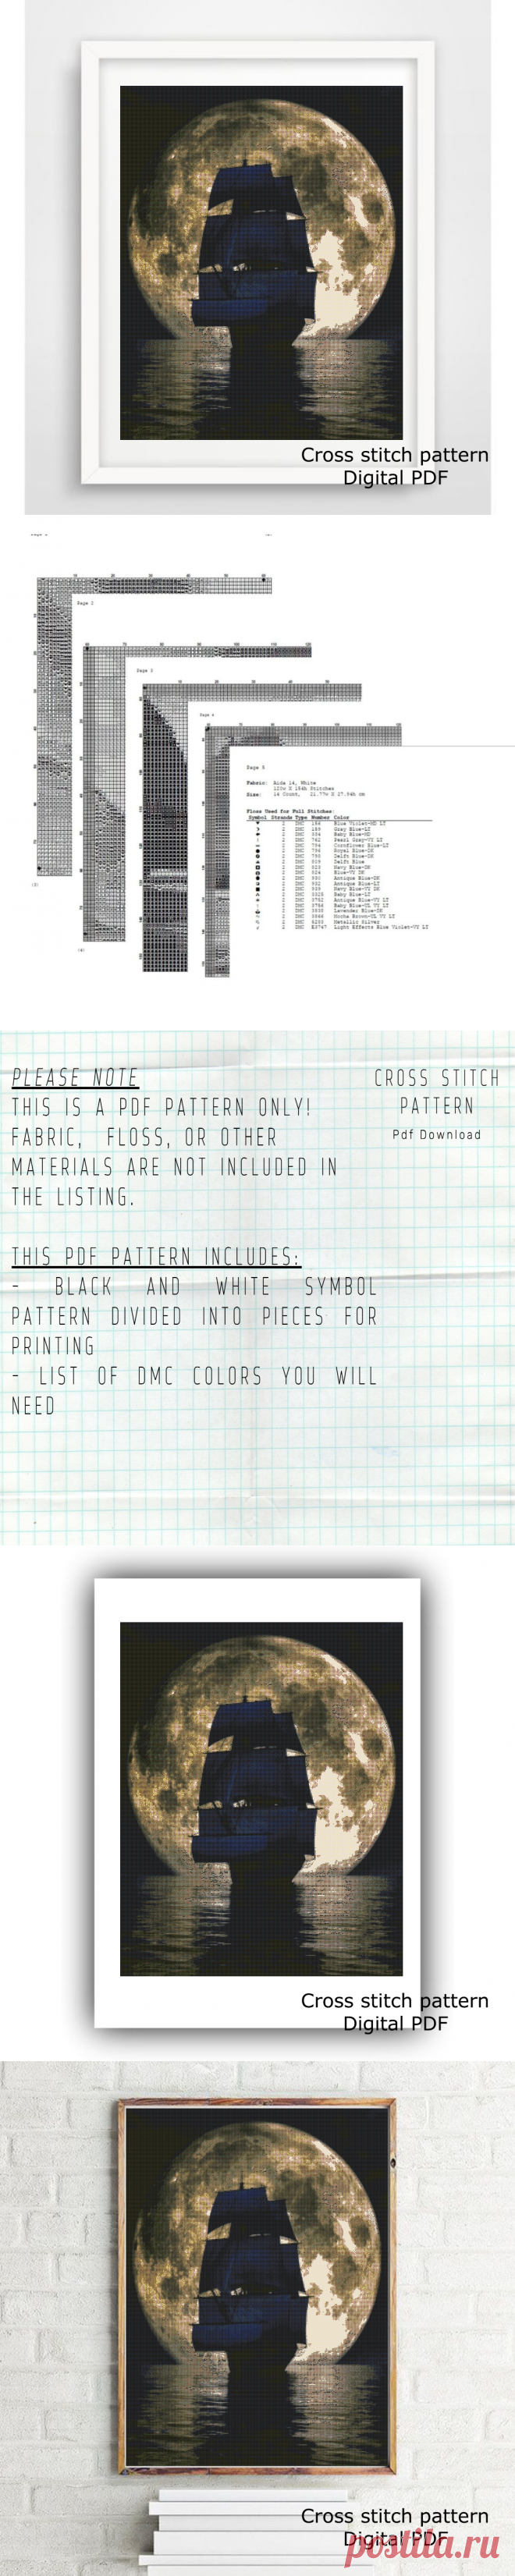 Cross stitch pattern
Digital PDF
Page 2
Page 3
Page 4
Page 5
Fabric: Aida 14, White
120w X 154h Stitches
Size: 14 Count, 21.77w X 27.94h cm
Floss Used for Full Stitches:
Symbol Strands Type Number Color
2 DMC
2 DMC
2 DMC
2 DMC 762 Pearl Gray-VY LT
2 DMC 794 Cornflower Blue-LT
2 DMC 796 Royal Blue-DK
2 DMC Delft Blue-DK
2 DMC 809 Delft Blue
2 DMC 823 Navy Blue-DK
2 DMC 824 Blue-VY DK
2 DMC 930 Antique Blue-DK
2 DMC 932 Antique Blue-LT
2 DMC 939 Navy Blue-VY DK
2 DMC 3325 Baby Blue-LT
2 DMC 3752 Antique Blue-VY LT
2 DMC Baby Blue-UL VY LT
2 DMC 3838 Lavender Blue-DK
2 DMC Mocha Brown-UL VY LT
2 DMC Metallic Silver
2 DMC E3747 Light Effects Blue Violet-VY LT
PLEASE NOTE
THIS IS A PDF PATTERN ONLY!
FABRIC, FLOSS, OR OTHER
MATERIALS ARE NOT INCLUDED IN
THE LISTING.
CROSS STITCH
PATTERN
Pdf Download
THIS PDF PATTERN INCLUDES:
- BLACK AND WHITE SYMBOL
PATTERN DIVIDED INTO PIECES FOR
PRINTING
- LIST OF DMC COLORS YOU WILL
NEED
Cross stitch pattern
Digital PDF
Cross stitch pattern
Digital PDF
postila.ru